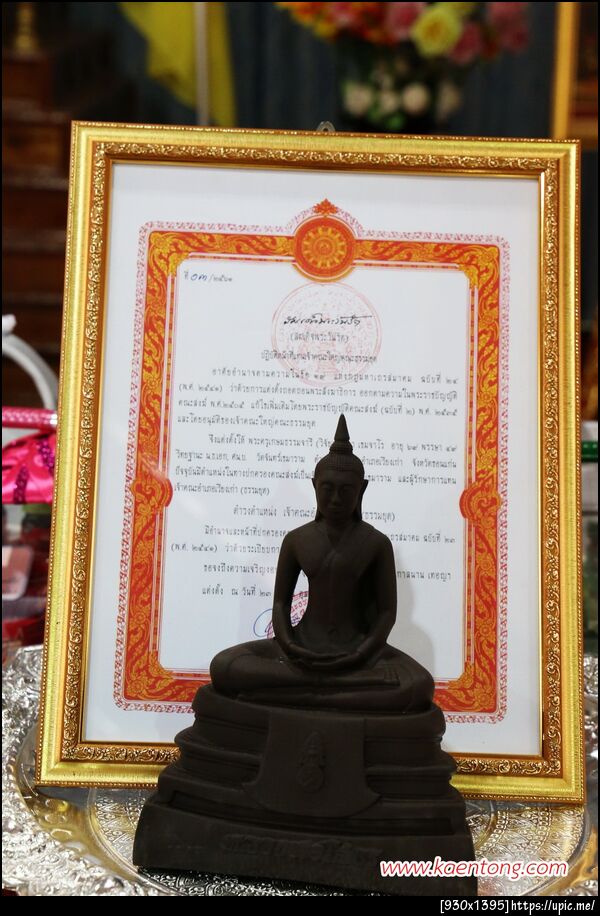 ที่ ๐๓/๒๕๖๑
(สมเด็จพระวันรัต)
ปฏิบัติหน้าที่แทนเจ้าคณะใหญ่คณะธรรมยุต
อาศัยอำนาจตามความในข้อ ๑๙ แห่งกฎมหาเถรสมาคม ฉบับที่ ๒๔
(พ.ศ. ๒๕๔๑) ว่าด้วยการแต่งตั้งถอดถอนพระสังฆาธิการ ออกตามความในพระราชบัญญัติ
คณะสงฆ์ พ.ศ.๒๕๐๕ แก้ไขเพิ่มเติมโดยพระราชบัญญัติคณะสงฆ์ (ฉบับที่ ๒) พ.ศ. ๒๕๓๕
และโดยอนุมัติของเจ้าคณะใหญ่คณะธรรมยุต
จึงแต่งตั้งให้ พระครูเกษมธรรมจารี เขมจาโร อายุ ๖๙ พรรษา ๔๙
วิทยฐานะ น.ธ.เอก, วัดจันทร์เขมาราม อำเภอเวียงเก่า จังหวัดขอนแก่น
ปัจจุบันมีตำแหน่งในทางปกครองคณะสงฆ์เป็น เขมาราม และผู้รักษาการแทน
เจ้าคณะอำเภอเวียงเก่า (ธรรมยุต)
ดำรงตำแหน่ง เจ้าคณะอำเภอ (ธรรมยุต)
มีอำนาจและหน้าที่ปกครองคณะ เถรสมาคม ฉบับที่ ๒๓
(พ.ศ. ๒๕๔๑) ว่าด้วยระเบียบการ
ขอจงถึงความเจริญ ตลอดกาลนาน เทอญฯ
แต่งตั้ง ณ วันที่ ๒๓
www.kaentong.com
[930x1395]https://upic.me/